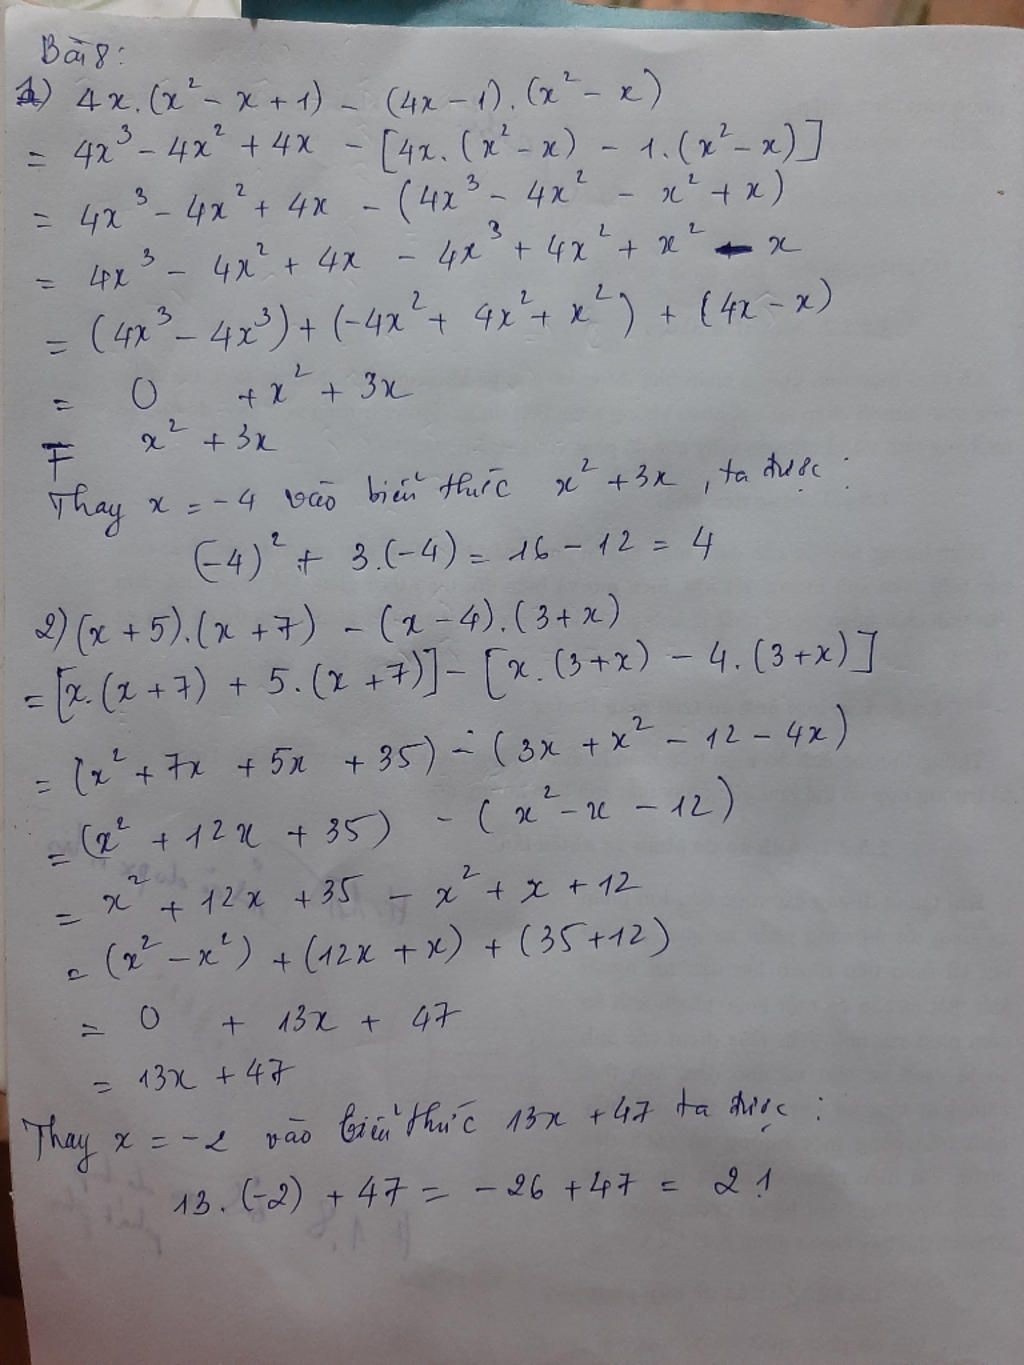 Bài 8:
1) 4x.(x² - x + 1) - (4x - 1).(x² - x)
= 4x³ - 4x² + 4x - [4x.(x² - x) - 1.(x² - x)]
= 4x³ - 4x² + 4x - (4x³ - 4x² - x² + x)
= 4x³ - 4x² + 4x - 4x³ + 4x² + x² - x
= (4x³ - 4x³) + (-4x² + 4x² + x²) + (4x - x)
= 0 + x² + 3x
= x² + 3x
Thay x = -4 vào biểu thức x² + 3x, ta được:
(-4)² + 3.(-4) = 16 - 12 = 4
2) (x + 5).(x + 7) - (x - 4).(3 + x)
= [x.(x + 7) + 5.(x + 7)] - [x.(3 + x) - 4.(3 + x)]
= (x² + 7x + 5x + 35) - (3x + x² - 12 - 4x)
= (x² + 12x + 35) - (x² - x - 12)
= x² + 12x + 35 - x² + x + 12
= (x² - x²) + (12x + x) + (35 + 12)
= 0 + 13x + 47
= 13x + 47
Thay x = -2 vào biểu thức 13x + 47 ta được:
13.(-2) + 47 = -26 + 47 = 21